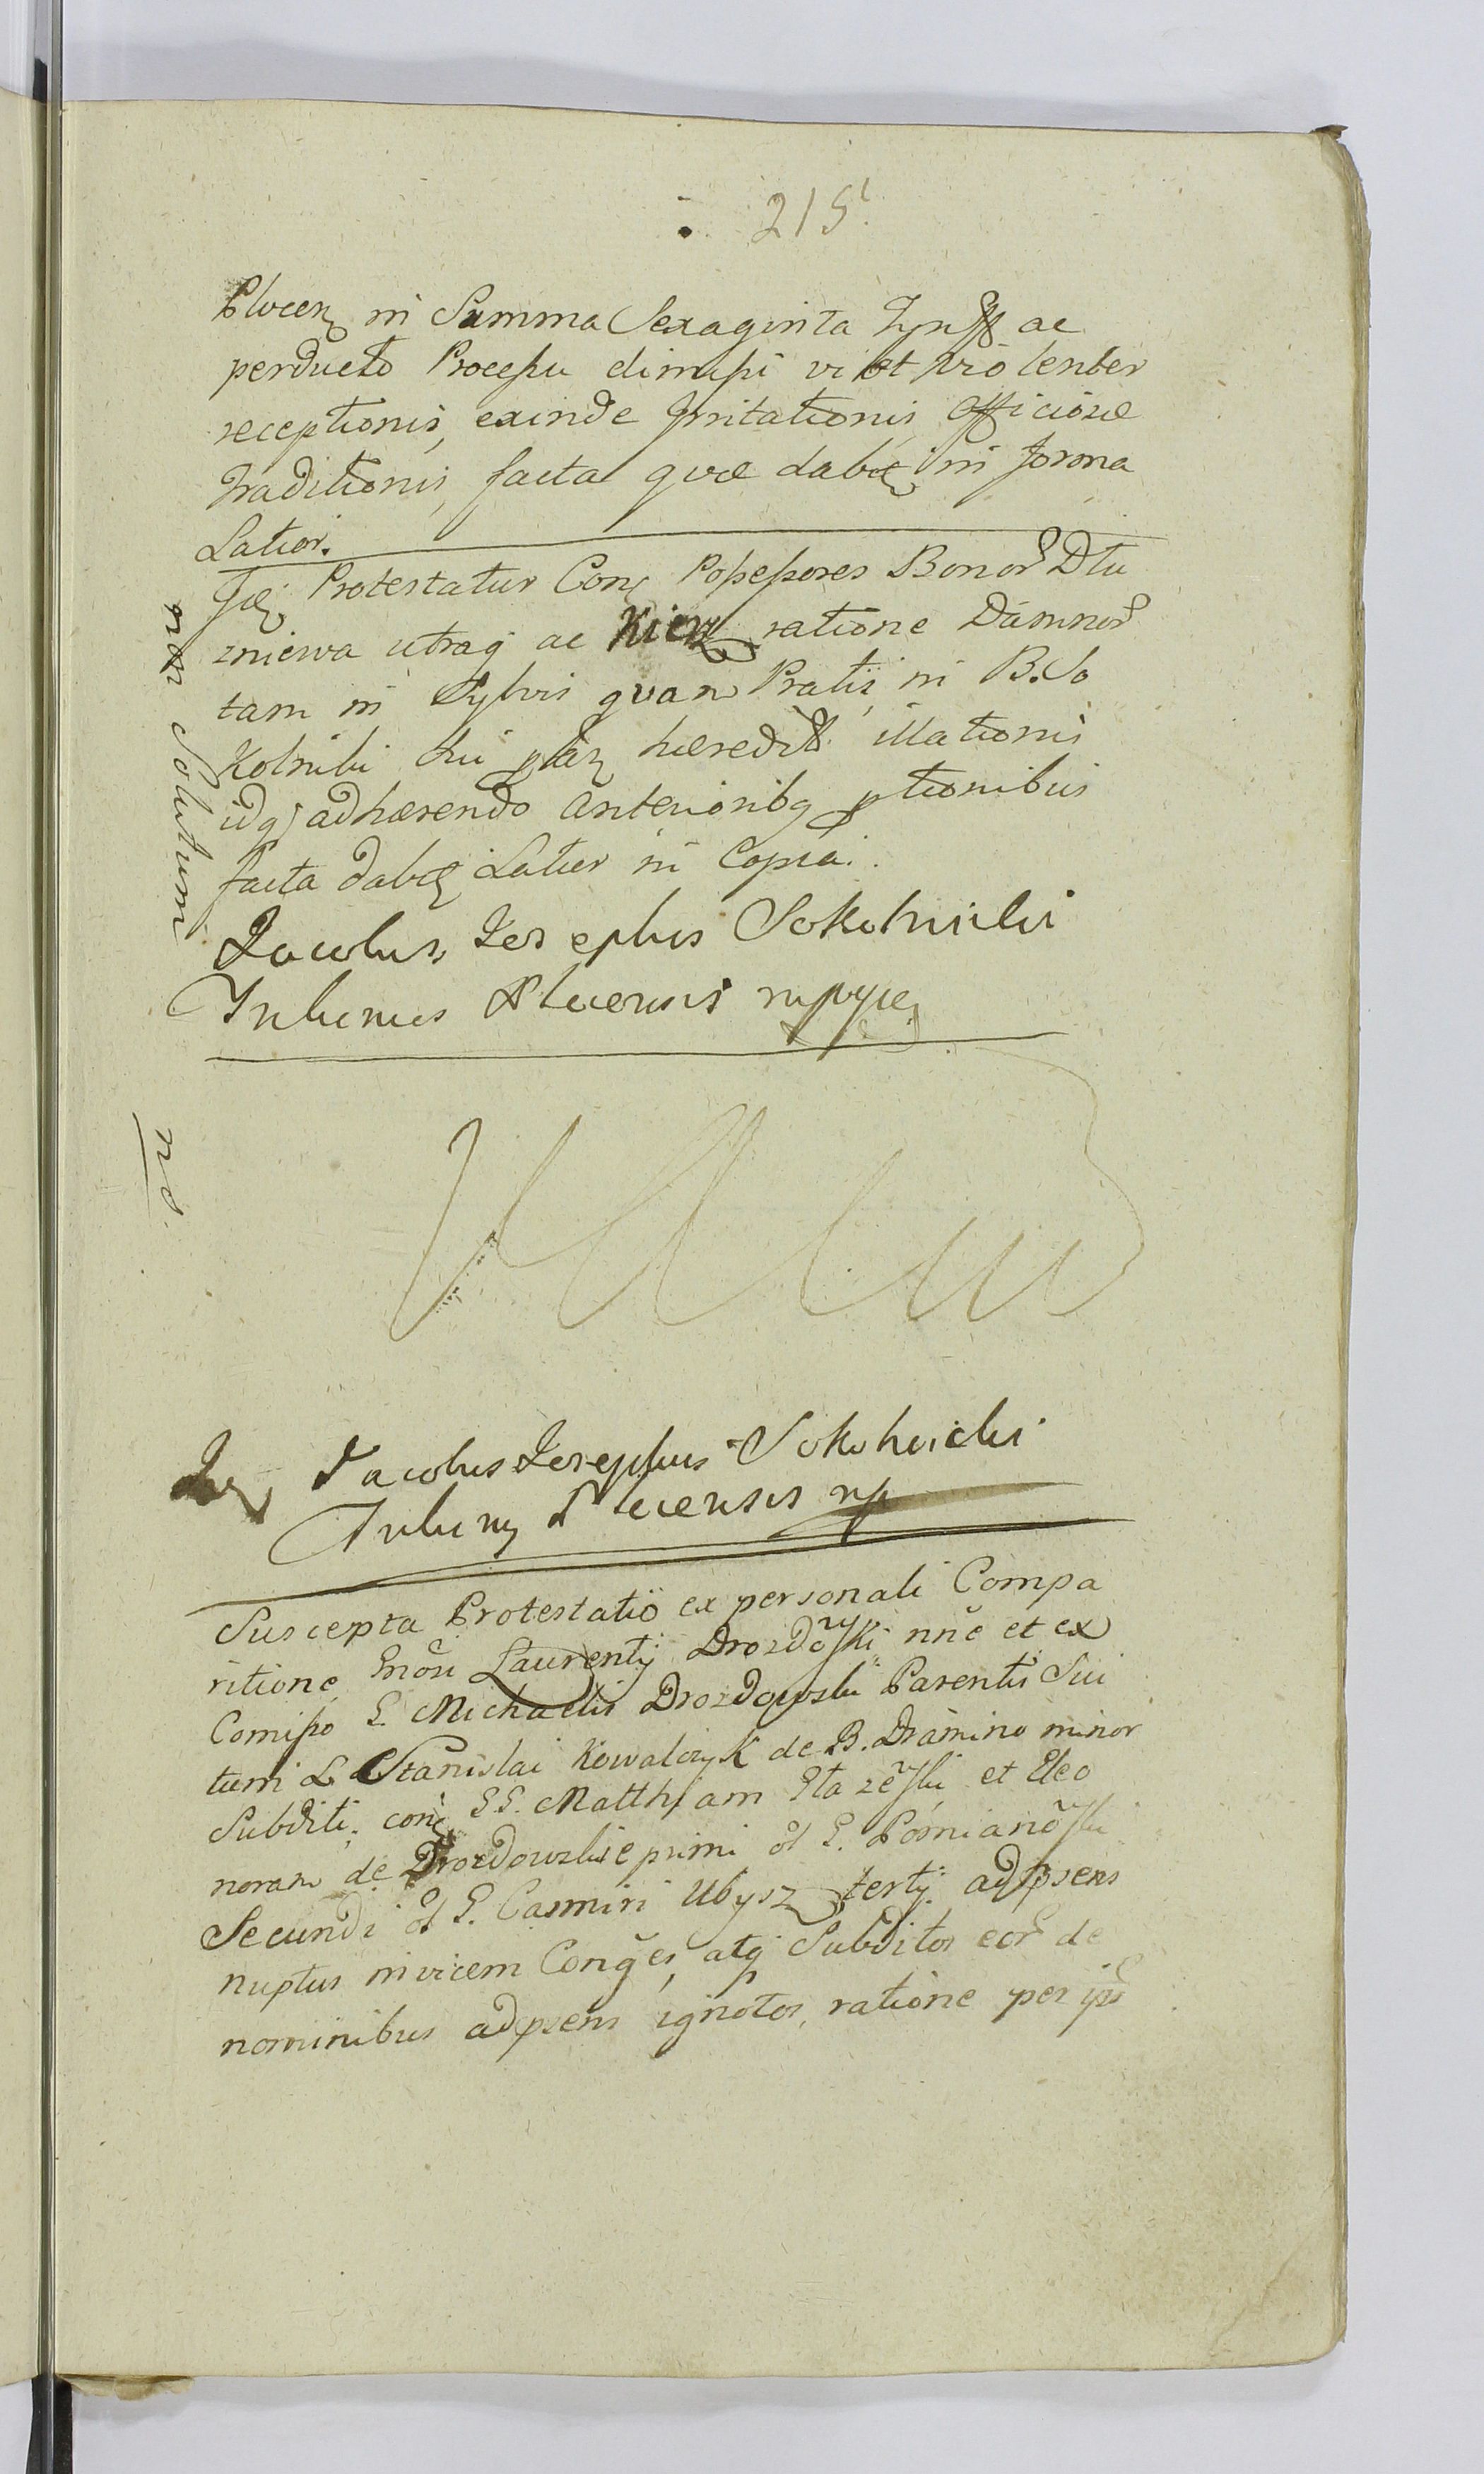 215
Plocen in Summa Sexaginta Tynff ac
perducto Processu dimissi vi et violenter
receptionis, exinde Irritationis Officiosæ
Traditionis, facta quæ dabit in forma
Latiori.
Protestatur Con Possessores Bonor Dlu
zniewa utraq ac Kierz ratione Damnor
tam in Sylvis quam Pratis, in B. So
kolniki sui hæredit illationis
idq adhærendo anterioribq ptionibus
facta dabit Latior in Copia.
Jacobus Josephus Sokolnicki
Tribunus Plocensis mppa
non Solutum
nS.
Jacobus Josephus Sokolnicki
Tribunus Plocensis mp
Suscepta Protestatio ex personali Compa
ritione Gnosi Laurentij Drozdowski nne et ex
Comisso G. Michaelis Drozdowski Parentis Sui
tum L Stanislai Kowalczyk de B. Dramino minor
Subditi. con GG. Matthiam et Eleo
noram de Drozdowskie primi ol G. Pomianowski
Secundi ol G. Casmiri Ubysz tertij adpsens
nuptus invicem Conges, atq Subditos eor de
nominibus adpsens ignotos, ratione per ips